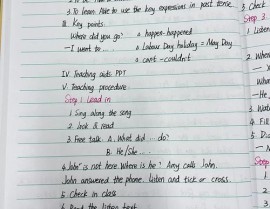 3. To learn Able to use the key expressions in past tense.
III. Key points.
Where did you go? a. happen-happened
-I went to ... b. Labour Day holiday = May Day
c. can't - couldn't
IV. Teaching aids: PPT
V. Teaching procedure:
Step 1 Lead in
1. Sing along the song
2. look & read
3. Free talk. A. What did ... do?
B. He/She ...
4. John is not here. Where is he? Amy calls John.
John answered the phone. listen and tick or cross.
5. Check in class
6. Read the listen text
5. Check
Step 3
1. Listen
2.
-He
3. Watc
4. Fill
5. Di
Step
1
2
3